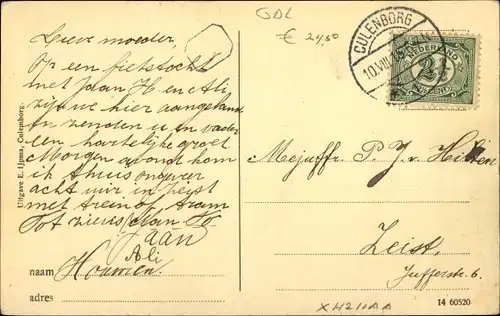 GDL
€ 24,50
CULENBORG
10.VIII
NEDERLAND
2½
CENT
Lieve moeder,
Op een fietstocht
met Jaan H en Ali,
zijn we hier aangeland
en zenden u en vader
een hartelijke groet
Morgen avond kom
ik thuis ongeveer
acht uur in Zeist
met trein of tram
Tot ziens
Jaan
Ali
naam Houmen.
adres
Uitgave E. IJpma, Culenborg.
Mejuffr. P. J. v. Hutten
Zeist,
Jufferstr. 6.
XH211AA
14 60520